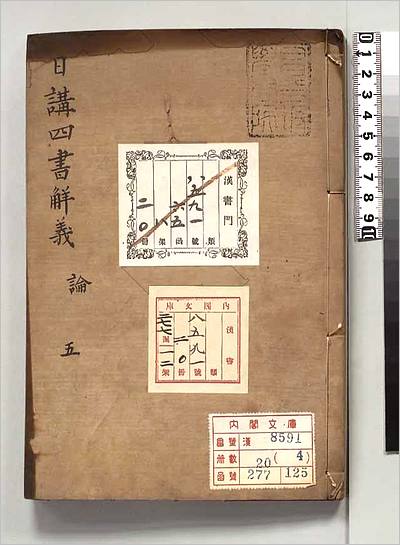 日講四書解義 論 五
漢書門
八五九一
六五
八
二〇
類 號 函 架 冊
內閣文庫
漢書
八五九一
二〇
類 號 冊
函 架
內閣文庫
番號 漢 8591
冊數 20 ( 4 )
函號 277 125
0 1 2 3 4 5 6 7 8 9